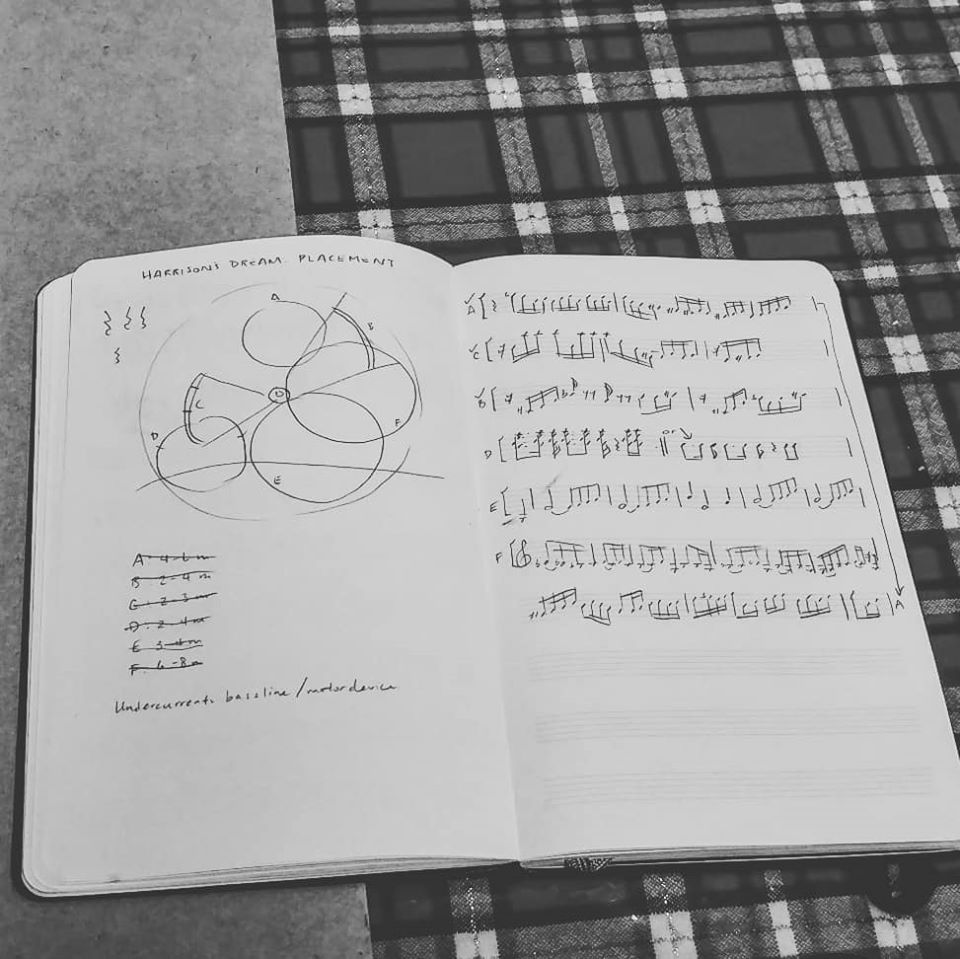 HARRISON'S DREAM. PLACEMENT
A
B
C
D
E
F
A: 4-6 m
B 2-4 m
C: 2-3 m
D: 2-4 m
E 3-4 m
F. 6-8 m
Undercurrents bassline / motor device
A
C
B
D
E
F
A